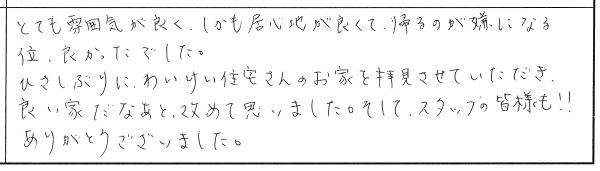 とても雰囲気が良く、しかも居心地が良くて、帰るのが嫌になる
位、良かったでした。
ひさしぶりに、わいけい住宅さんのお家を拝見させていただき、
良い家だなあと、改めて思いました。そして、スタッフの皆様も!!
ありがとうございました。